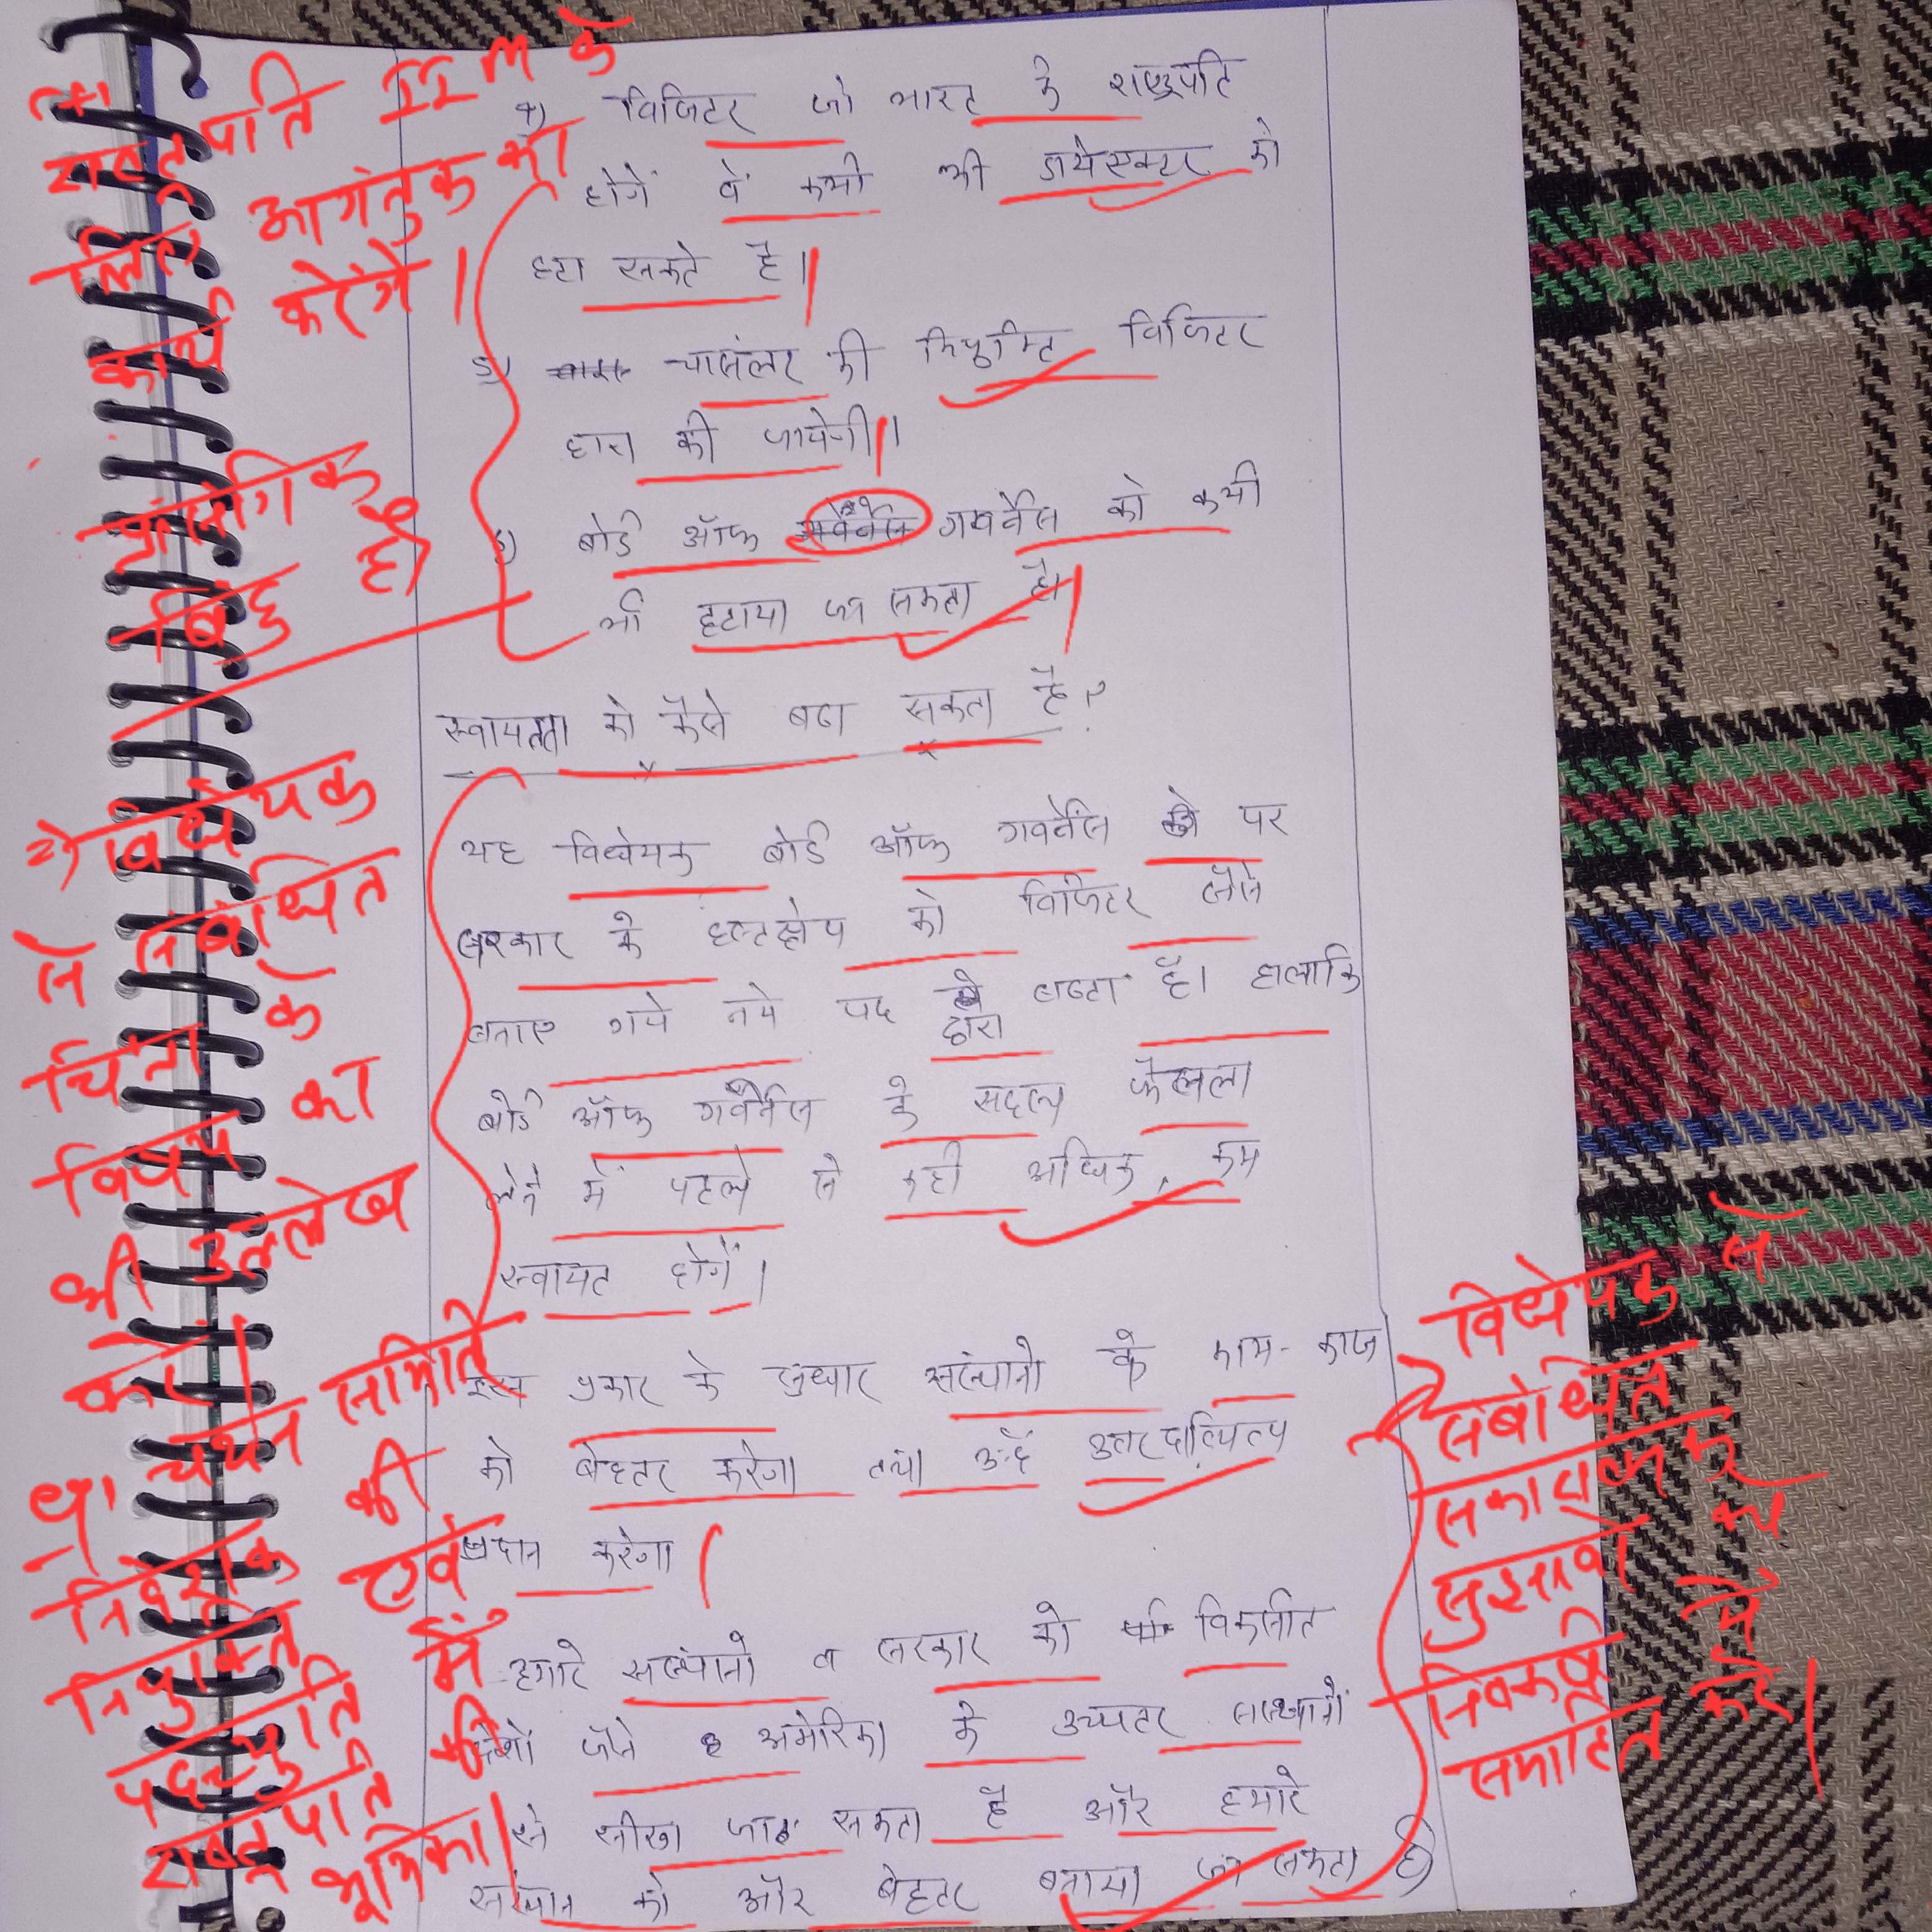 (+)
राष्ट्रपति IIM के
लिए आगंतुक का
कार्य करेंगे।
प्रासंगिक
बिंदु है।
=) विधेयक
से संबंधित
चिंता के
विषय का
भी उल्लेख
करें।
चयन समिति
की
निदेशक एवं
नियुक्ति में
पदच्युति की
राष्ट्रपति
भूमिका।
4) विजिटर जो भारत के राष्ट्रपति
होगें वें कभी भी डायरेक्टर को
हटा सकते है।
5) चासंलर की नियुक्ति विजिटर
द्वारा की जायेगी।
6) बोर्ड ऑफ गवर्नेस को कभी
भी हटाया जा सकता है।
स्वायतता को कैसे बढा सकता है?
यह विधेयक बोर्ड ऑफ गवर्नेस पर
सरकार के हस्तक्षेप को विजिटर जैसे
बनाए गये नये पद द्वारा बढता है। हालाकि
बोर्ड ऑफ गर्वनेस के सदस्य फैसला
लेने में पहले से कही अधिक, कम
स्वायत होगें।
इस प्रकार के सुधार सस्थानो के काम-काज
को बेहतर करेगा तथा उन्हें उत्तरदायित्व
प्रदान करेगा
हमारे सस्थानो व सरकार को विकसीत
देशों जैसे अमेरिका के उच्चतर सस्थानों
से सीखा जा सकता है और हमारे
सस्थान को और बेहतर बनाया जा सकता है
विधेयक से
संबंधित
सकारात्मक
सुझावों को
निष्कर्ष में
समाहित करें।